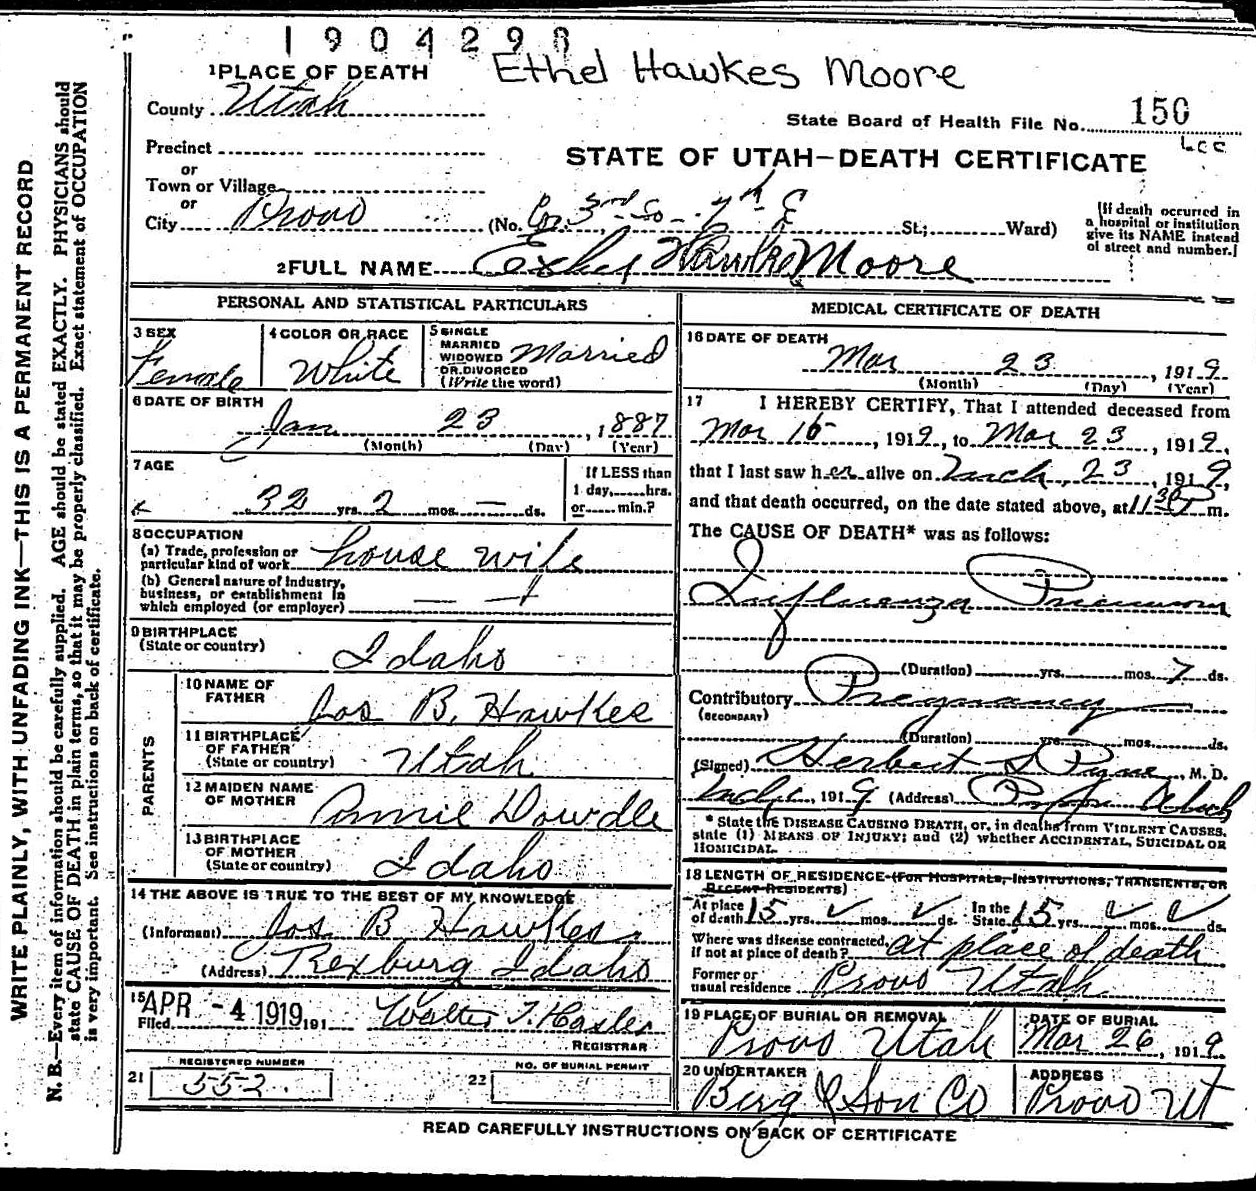 1904298
Ethel Hawkes Moore
1 PLACE OF DEATH
County Utah
State Board of Health File No. 150
Precinct
or
STATE OF UTAH—DEATH CERTIFICATE
Town or Village
or
City Provo (No. Cor. 3rd So - 7th E St.; Ward)
[If death occurred in a hospital or institution give its NAME instead of street and number.]
2 FULL NAME Hawkes Moore
PERSONAL AND STATISTICAL PARTICULARS
3 SEX
Female
4 COLOR OR RACE
White
5 SINGLE
MARRIED
WIDOWED
OR DIVORCED
(Write the word)
Married
6 DATE OF BIRTH
Jan 23, 1887
(Month) (Day) (Year)
7 AGE
32 yrs. 2 mos. — ds.
If LESS than
1 day, hrs.
or min.?
8 OCCUPATION
(a) Trade, profession or
particular kind of work house wife
(b) General nature of industry,
business, or establishment in
which employed (or employer)
9 BIRTHPLACE
(State or country) Idaho
PARENTS
10 NAME OF
FATHER Jos B. Hawkes
11 BIRTHPLACE
OF FATHER
(State or country) Utah
12 MAIDEN NAME
OF MOTHER Annie Dowdle
13 BIRTHPLACE
OF MOTHER
(State or country) Idaho
14 THE ABOVE IS TRUE TO THE BEST OF MY KNOWLEDGE
(Informant) Jos B Hawkes
(Address) Rexburg Idaho
15
APR -4 1919
Filed 191
Walter T. Hasler
REGISTRAR
REGISTERED NUMBER
21 552.
NO. OF BURIAL PERMIT
22
MEDICAL CERTIFICATE OF DEATH
16 DATE OF DEATH
Mar 23, 1919
(Month) (Day) (Year)
17 I HEREBY CERTIFY, That I attended deceased from
Mar 16, 1919, to Mar 23, 1919,
that I last saw her alive on Mch, 23 1919,
and that death occurred, on the date stated above, at 11 30 P m.
The CAUSE OF DEATH* was as follows:
Influenza Pneumonia
(Duration) yrs. mos. 7 ds.
Contributory Pregnancy
(SECONDARY)
(Duration) yrs. mos. ds.
(Signed) Herbert S Pyne, M. D.
1919 (Address) Provo Utah
* State the DISEASE CAUSING DEATH, or, in deaths from VIOLENT CAUSES,
state (1) MEANS OF INJURY; and (2) whether ACCIDENTAL, SUICIDAL OR
HOMICIDAL.
18 LENGTH OF RESIDENCE (FOR HOSPITALS, INSTITUTIONS, TRANSIENTS, OR
RECENT RESIDENTS)
At place
of death 15 yrs. mos. ds. In the
State 15 yrs. mos. ds.
Where was disease contracted,
if not at place of death? at place of death
Former or
usual residence Provo Utah
19 PLACE OF BURIAL OR REMOVAL
Provo Utah
DATE OF BURIAL
Mar 26, 1919
20 UNDERTAKER
Berg & Son Co
ADDRESS
Provo Ut
READ CAREFULLY INSTRUCTIONS ON BACK OF CERTIFICATE
WRITE PLAINLY, WITH UNFADING INK—THIS IS A PERMANENT RECORD
N. B.—Every item of information should be carefully supplied. AGE should be stated EXACTLY. PHYSICIANS should
state CAUSE OF DEATH in plain terms, so that it may be properly classified. Exact statement of OCCUPATION
is very important. See instructions on back of certificate.